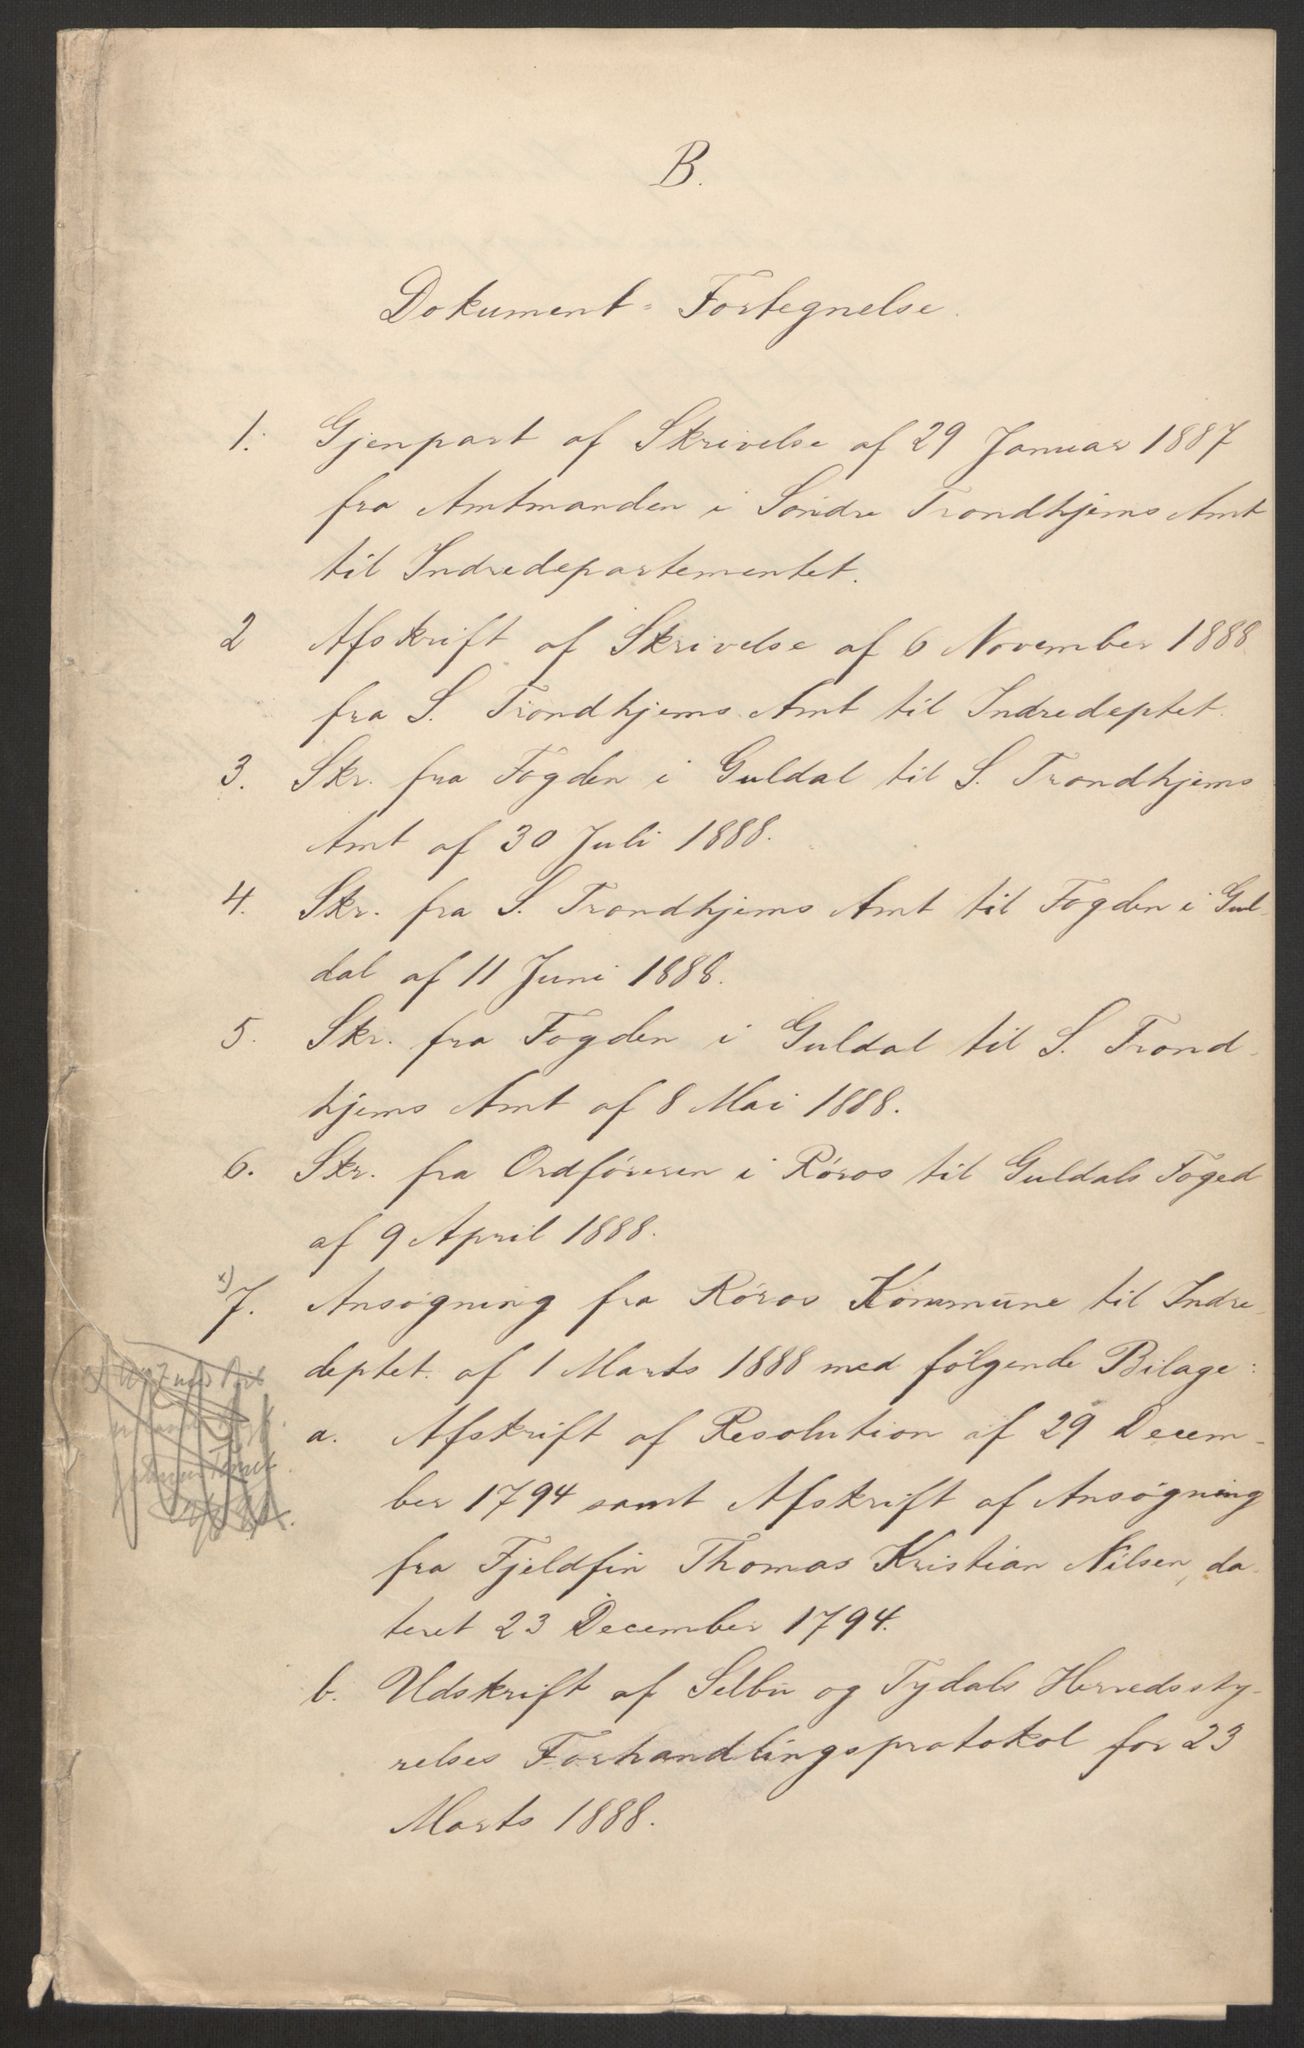 B.
Dokument-Fortegnelse.
1. Gjenpart af Skrivelse af 29 Januar 1887
fra Amtmanden i Söndre Trondhjems Amt
til Indredepartementet.
2 Afskrift af Skrivelse af 6 November 1888
fra S. Trondhjems Amt til Indredeptet.
3. Skr. fra Fogden i Guldal til S. Trondhjems
Amt af 30 Juli 1888.
4. Skr. fra S. Trondhjems Amt til Fogden i Gul-
dal af 11 Juni 1888.
5. Skr. fra Fogden i Guldal til S. Trond-
hjems Amt af 8 Mai 1888.
6. Skr. fra Ordföreren i Röros til Guldals Foged
af 9 April 1888.
x) 7. Ansögning fra Röros Kommune til Indre-
deptet. af 1 Marts 1888 med fölgende Bilage:
a. Afskrift af Resolution af 29 Decem-
ber 1794 samt Afskrift af Ansögning
fra Fjeldfin Thomas Kristian Nilsen, da-
teret 23 December 1794.
b. Udskrift af Selbu og Tydals Herredssty-
relses Forhandlingsprotokol for 23
Marts 1888.